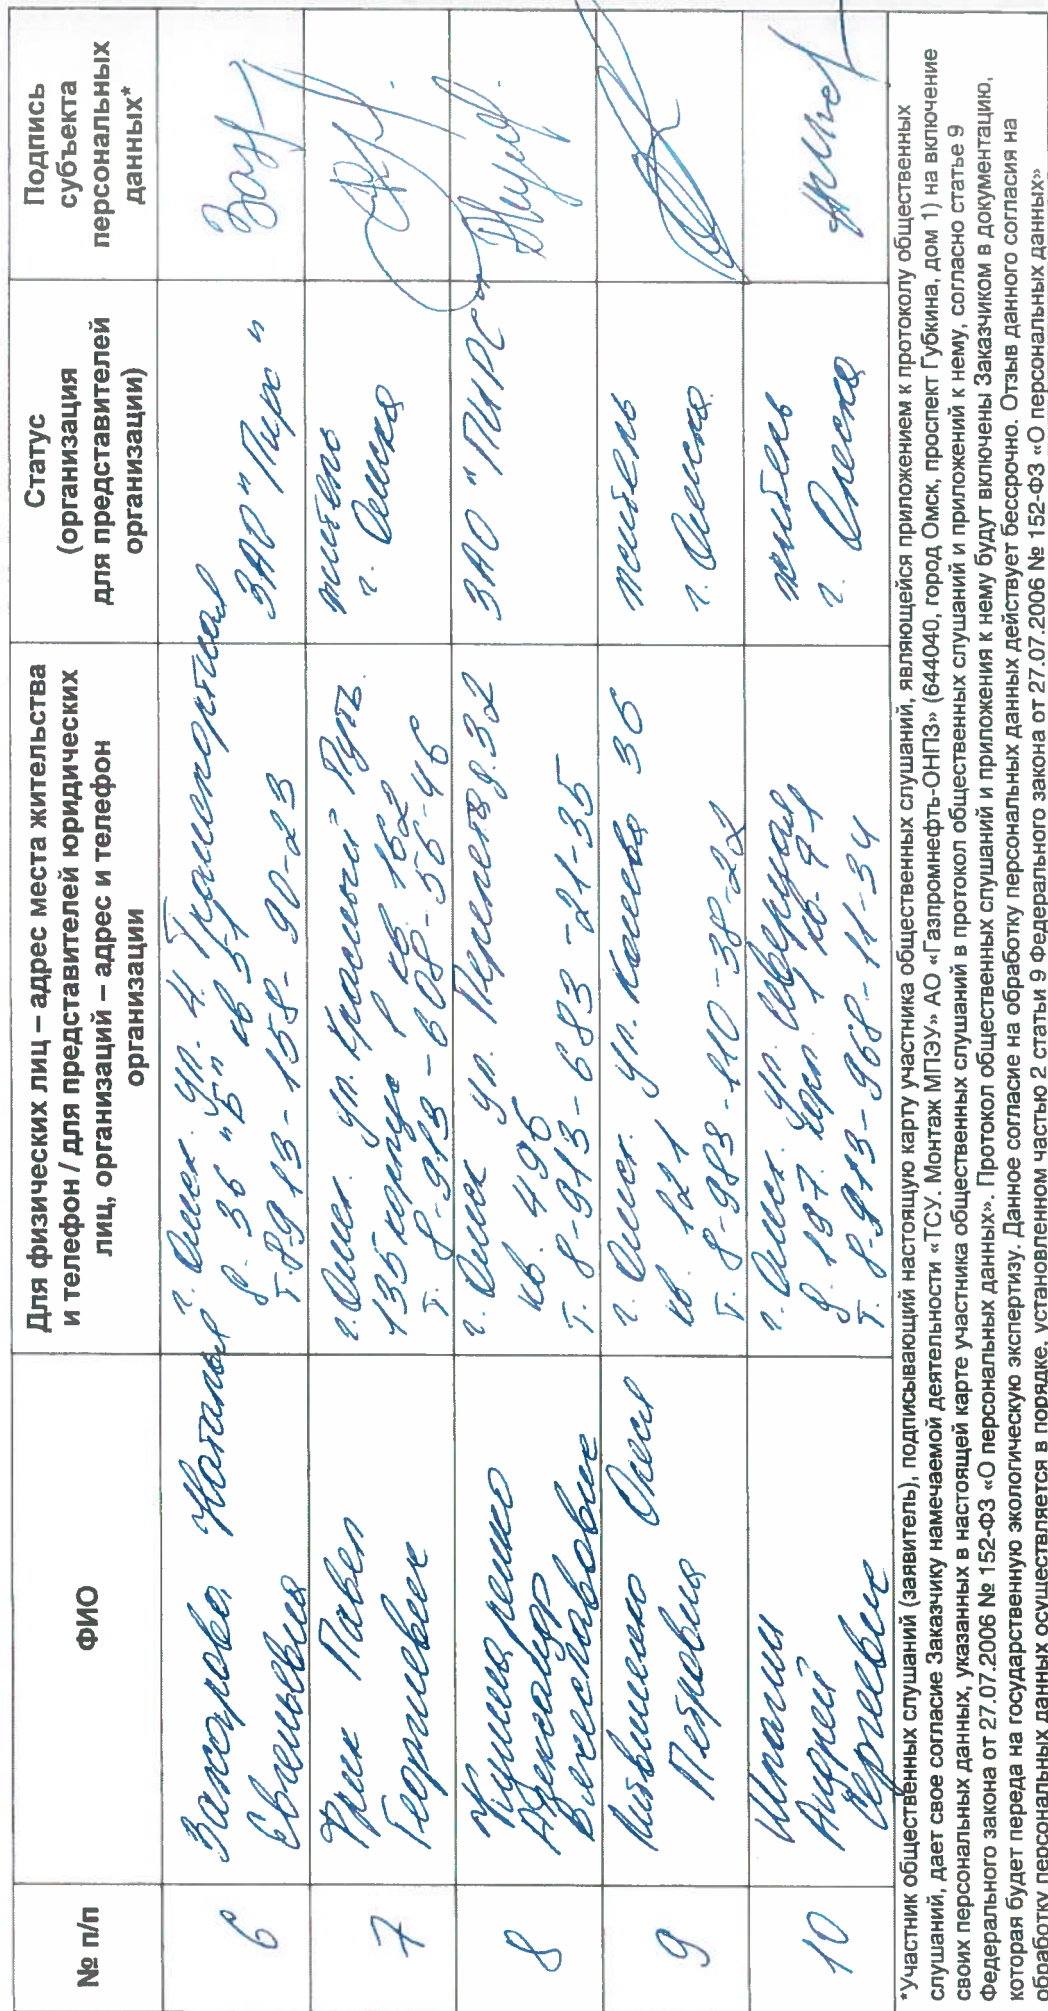 № п/п
ФИО
Для физических лиц – адрес места жительства
и телефон / для представителей юридических
лиц, организаций – адрес и телефон
организации
Статус
(организация
для представителей
организации)
Подпись
субъекта
персональных
данных*
6
Наталья
Евгеньевна
г. Омск ул. 4 Транспортная
д. 36 "Б" кв 51
Т. 8-913-158-90-23
ЗАО "Пирс"
7
Фрик Павел
Георгиевич
г. Омск. ул. Красный Путь
135 корпус 1 кв. 162
т. 8-913-608-56-46
житель
г. Омска
8
Кушнаренко
Александр
Вячеславович
г. Омск ул. Перелета д. 32
кв. 496
т. 8-913-683-21-35
ЗАО "ПИРС"
9
Литвиненко Олеся
Петровна
г. Омск. ул. 36
кв. 121
т. 8-983-110-38-22
житель
г. Омска
10
Шпагин
Андрей
Сергеевич
г. Омск. ул. Северная
д. 197. корп. 1 кв. 71
т. 8-913-968-11-34
житель
г. Омска
*Участник общественных слушаний (заявитель), подписывающий настоящую карту участника общественных слушаний, являющейся приложением к протоколу общественных
слушаний, дает свое согласие Заказчику намечаемой деятельности «ТСУ. Монтаж МПЭУ» АО «Газпромнефть-ОНПЗ» (644040, город Омск, проспект Губкина, дом 1) на включение
своих персональных данных, указанных в настоящей карте участника общественных слушаний в протокол общественных слушаний и приложений к нему, согласно статье 9
Федерального закона от 27.07.2006 № 152-ФЗ «О персональных данных». Протокол общественных слушаний и приложения к нему будут включены Заказчиком в документацию,
которая будет переда на государственную экологическую экспертизу. Данное согласие на обработку персональных данных действует бессрочно. Отзыв данного согласия на
обработку персональных данных осуществляется в порядке, установленном частью 2 статьи 9 Федерального закона от 27.07.2006 № 152-ФЗ «О персональных данных»